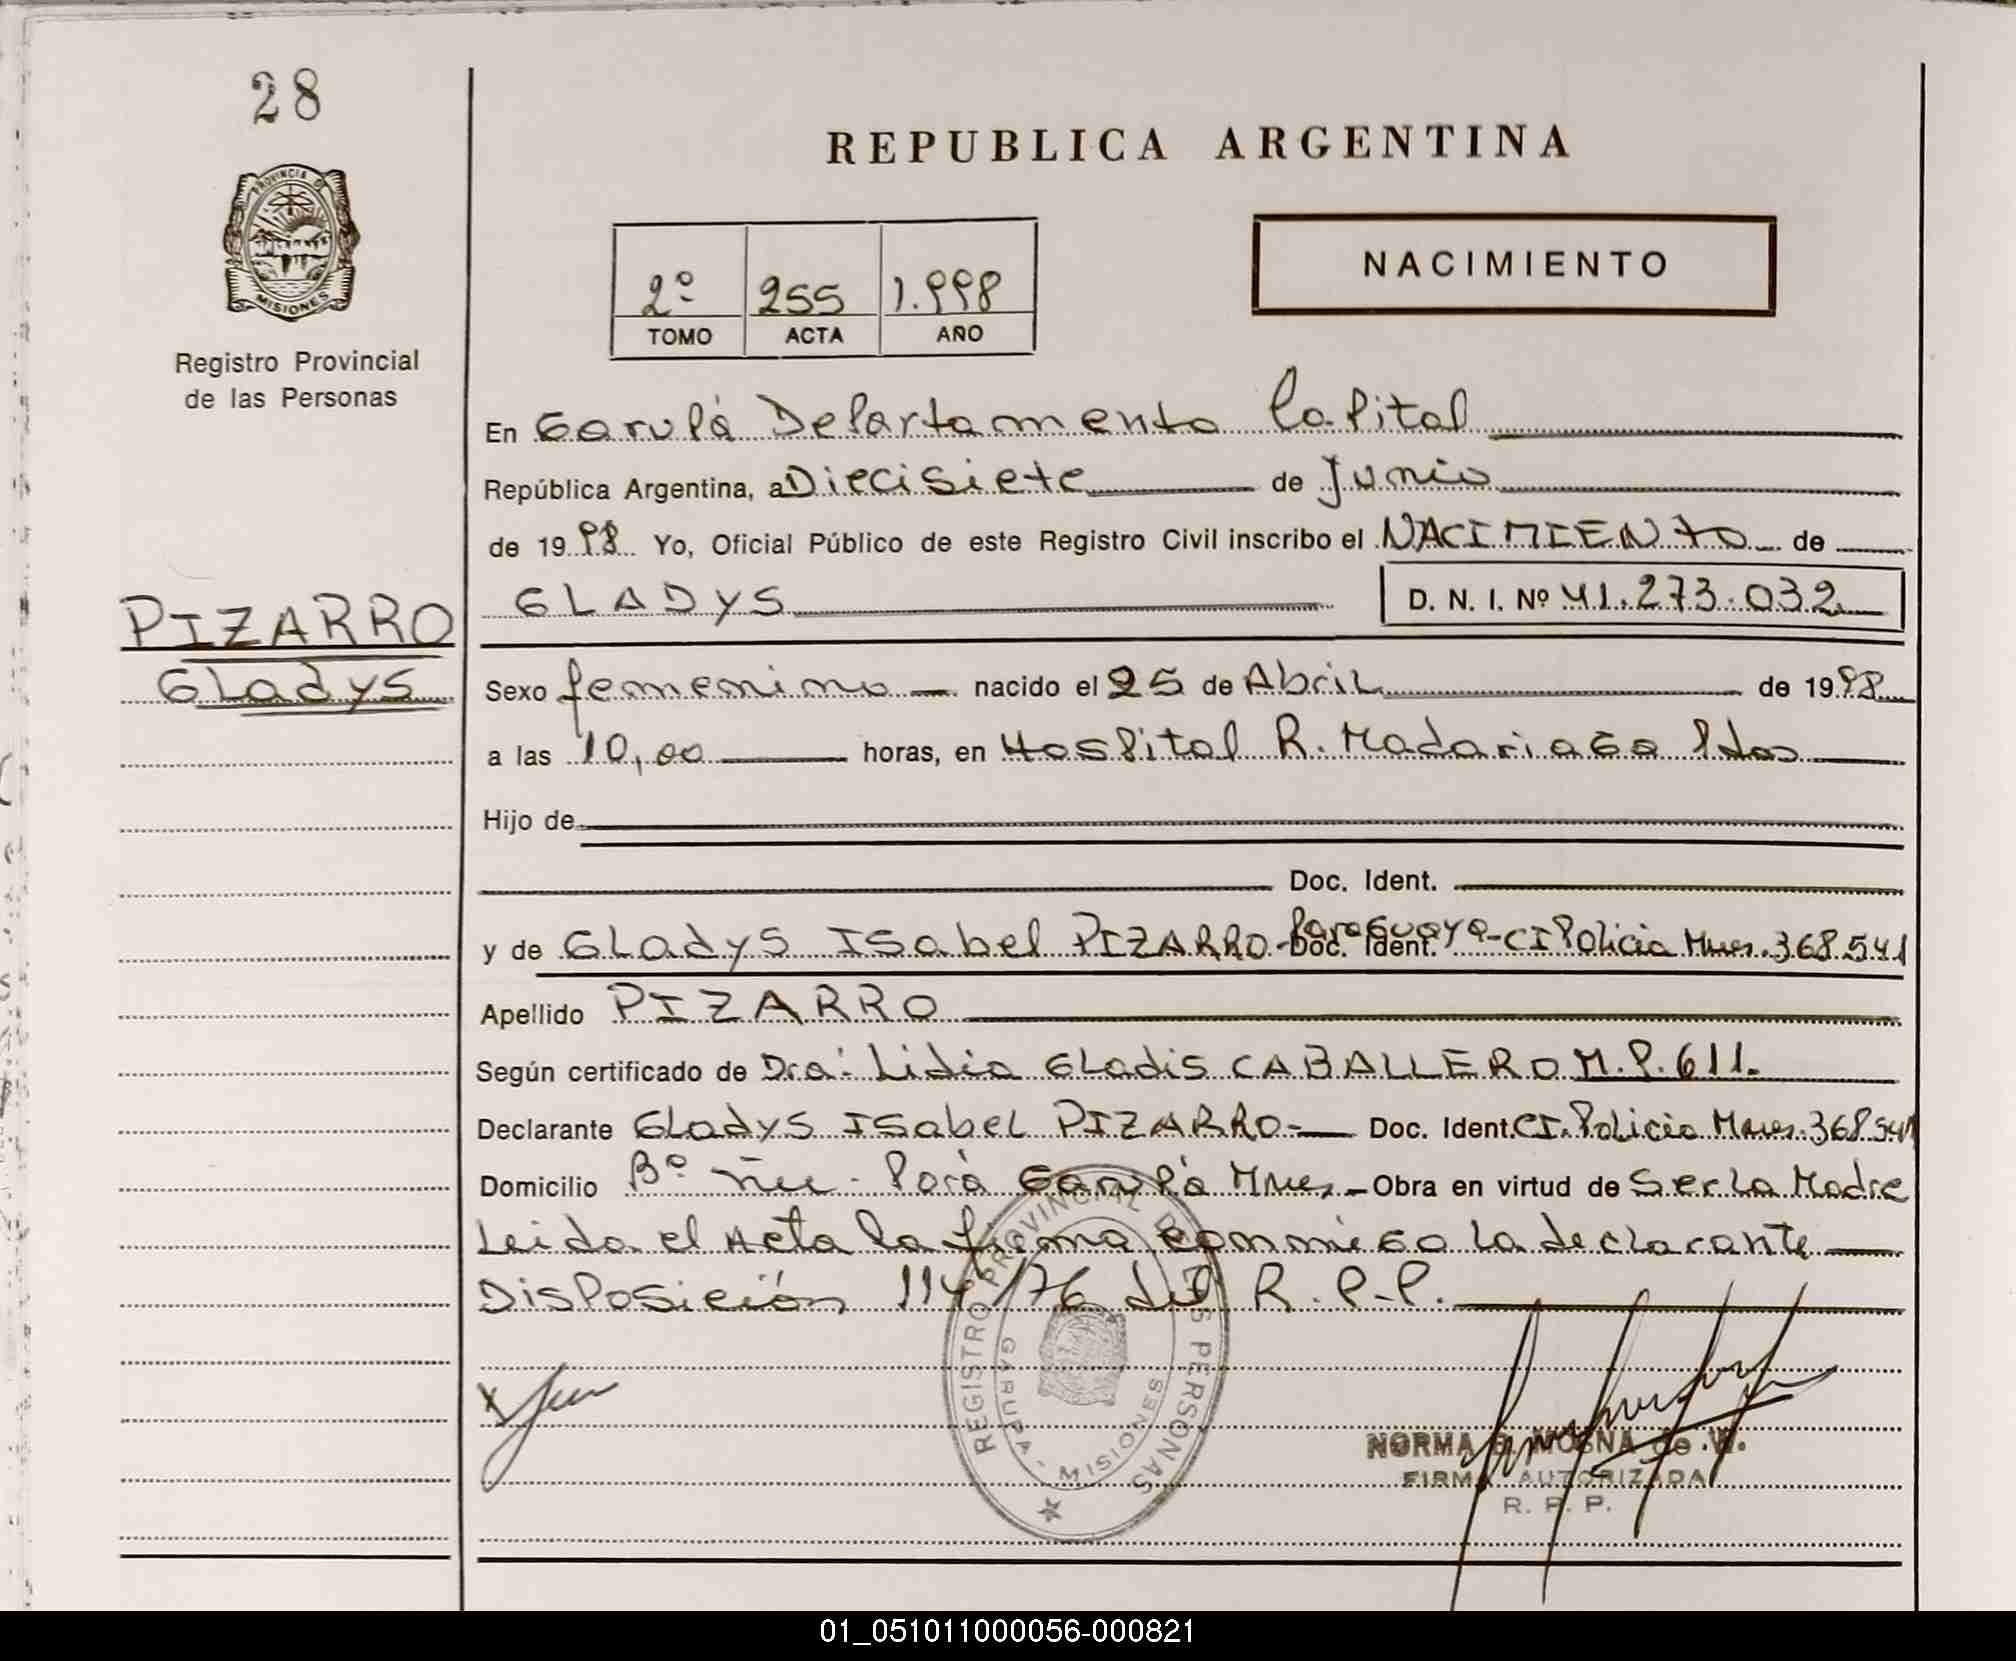 28
REPUBLICA ARGENTINA
PROVINCIA DE
MISIONES
Registro Provincial
de las Personas
2º 255 1.998
TOMO ACTA AÑO
NACIMIENTO
En Garupá Departamento Capital
República Argentina, a Diecisiete de Junio
de 1998 Yo, Oficial Público de este Registro Civil inscribo el NACIMIENTO de
GLADYS D. N. I. Nº 41.273.032
PIZARRO
Gladys
Sexo femenino nacido el 25 de Abril de 1998
a las 10,00 horas, en Hospital R. Madariaga Pdas
Hijo de
Doc. Ident.
y de Gladys Isabel PIZARRO - Paraguaya - Doc. Ident. CI Policia Mnes. 368.541
Apellido PIZARRO
Según certificado de Dra: Lidia Gladis CABALLERO M.P. 611.
Declarante Gladys Isabel PIZARRO - Doc. Ident. CI. Policia Mnes. 368.541
Domicilio Bº Ñu - Porá Garupá Mnes, - Obra en virtud de Ser La Madre
Leida el Acta la firma conmigo la declarante
Disposición 114/76 del R.P.P.
REGISTRO PROVINCIAL DE LAS PERSONAS
GARUPA - MISIONES
NORMA MOSNA de W.
FIRMA AUTORIZADA
R. P. P.
01_051011000056-000821